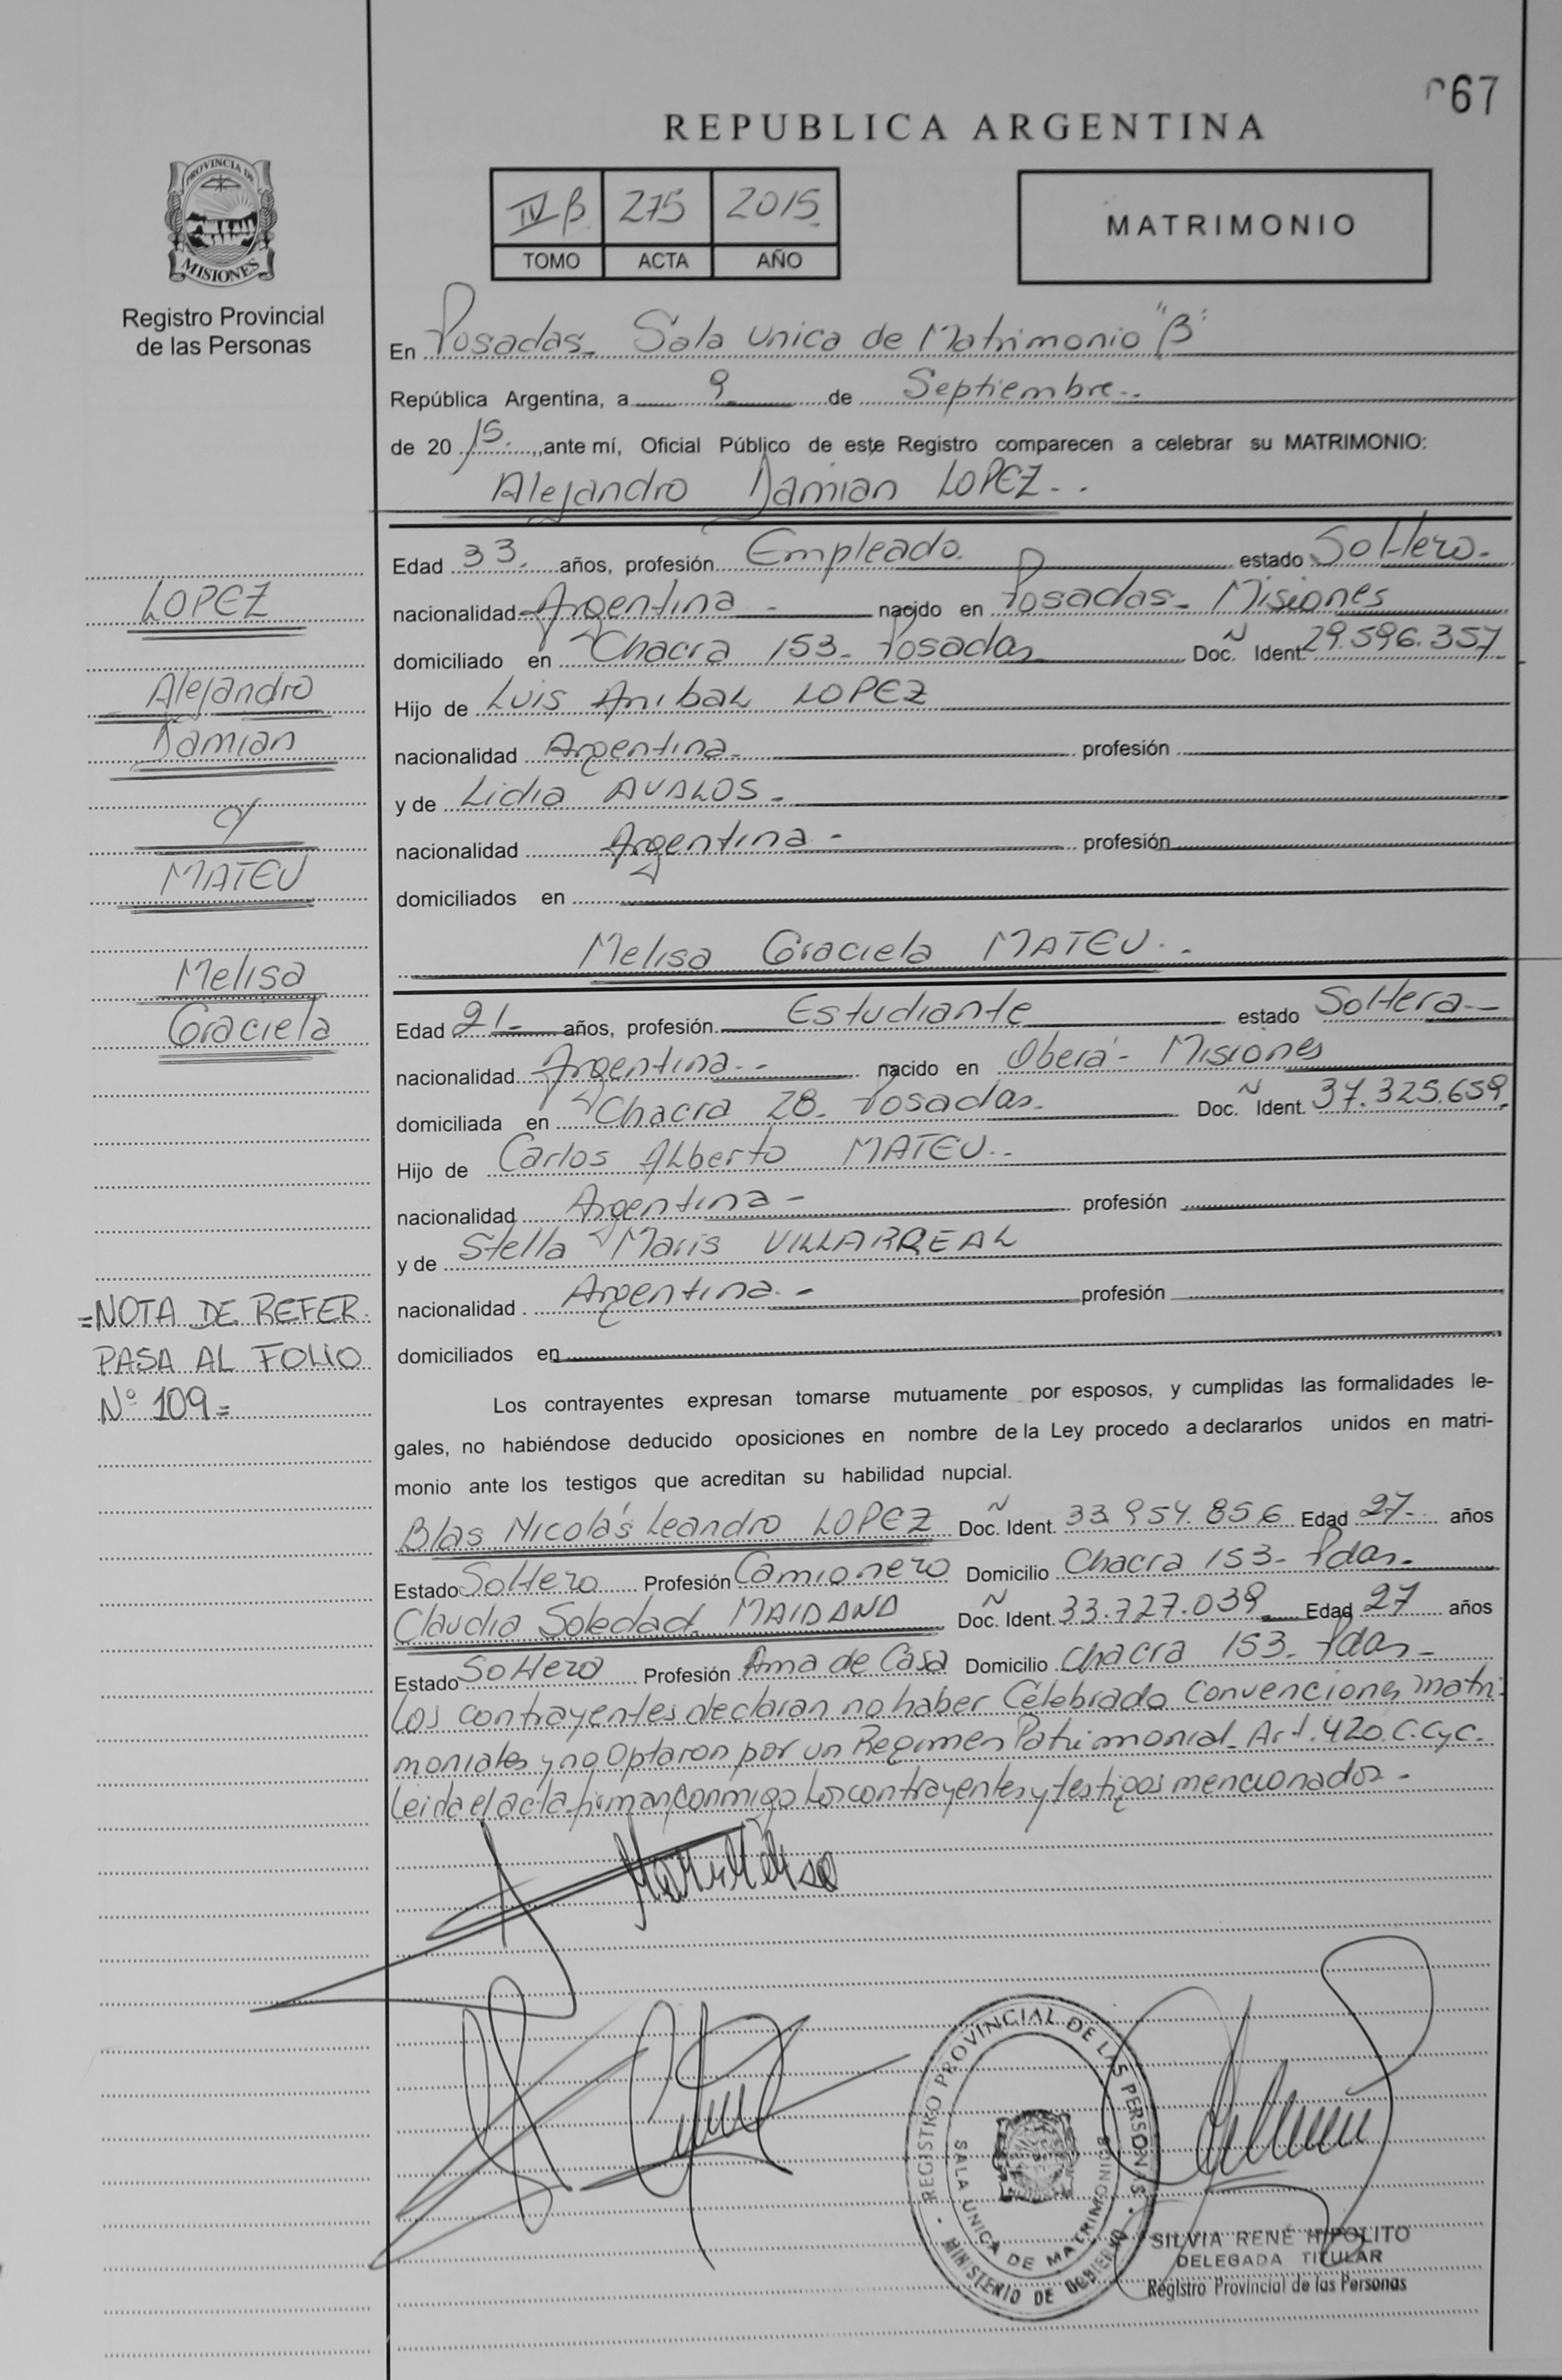 067
REPUBLICA ARGENTINA
PROVINCIA DE
MISIONES
Registro Provincial
de las Personas
IV B 275 2015
TOMO ACTA AÑO
MATRIMONIO
En Posadas - Sala Unica de Matrimonio "B"
República Argentina, a 9 de Septiembre
de 2015, ante mí, Oficial Público de este Registro comparecen a celebrar su MATRIMONIO:
Alejandro Damian LOPEZ
Edad 33 años, profesión Empleado estado Soltero
nacionalidad Argentina nacido en Posadas - Misiones
domiciliado en Chacra 153 - Posadas Doc. Ident. 29.596.357
Hijo de Luis Anibal LOPEZ
nacionalidad Argentina profesión
y de Lidia AVALOS
nacionalidad Argentina profesión
domiciliados en
LOPEZ
Alejandro
Damian
c/
MATEU
Melisa
Graciela
Melisa Graciela MATEU
Edad 21 años, profesión Estudiante estado Soltera
nacionalidad Argentina nacido en Oberá - Misiones
domiciliada en Chacra 28 - Posadas Doc. Ident. 37.325.659
Hijo de Carlos Alberto MATEU
nacionalidad Argentina profesión
y de Stella Maris VILLARREAL
nacionalidad Argentina profesión
domiciliados en
=NOTA DE REFER.
PASA AL FOLIO
N° 109=
Los contrayentes expresan tomarse mutuamente por esposos, y cumplidas las formalidades le-
gales, no habiéndose deducido oposiciones en nombre de la Ley procedo a declararlos unidos en matri-
monio ante los testigos que acreditan su habilidad nupcial.
Blas Nicolás Leandro LOPEZ Doc. Ident. 33.954.856 Edad 27 años
Estado Soltero Profesión Camionero Domicilio Chacra 153 - Pdas.
Claudia Soledad MAIDANA Doc. Ident. 33.727.039 Edad 27 años
Estado Soltero Profesión Ama de Casa Domicilio Chacra 153 - Pdas
Los contrayentes declaran no haber Celebrado Convenciones matri-
moniales y no Optaron por un Regimen Patrimonial - Art. 420. C.CyC.
Leida el acta firman conmigo los contrayentes y testigos mencionados -
REGISTRO PROVINCIAL DE LAS PERSONAS
SALA UNICA DE MATRIMONIOS
MINISTERIO DE GOBIERNO
SILVIA RENÉ HIPOLITO
DELEGADA TITULAR
Registro Provincial de las Personas